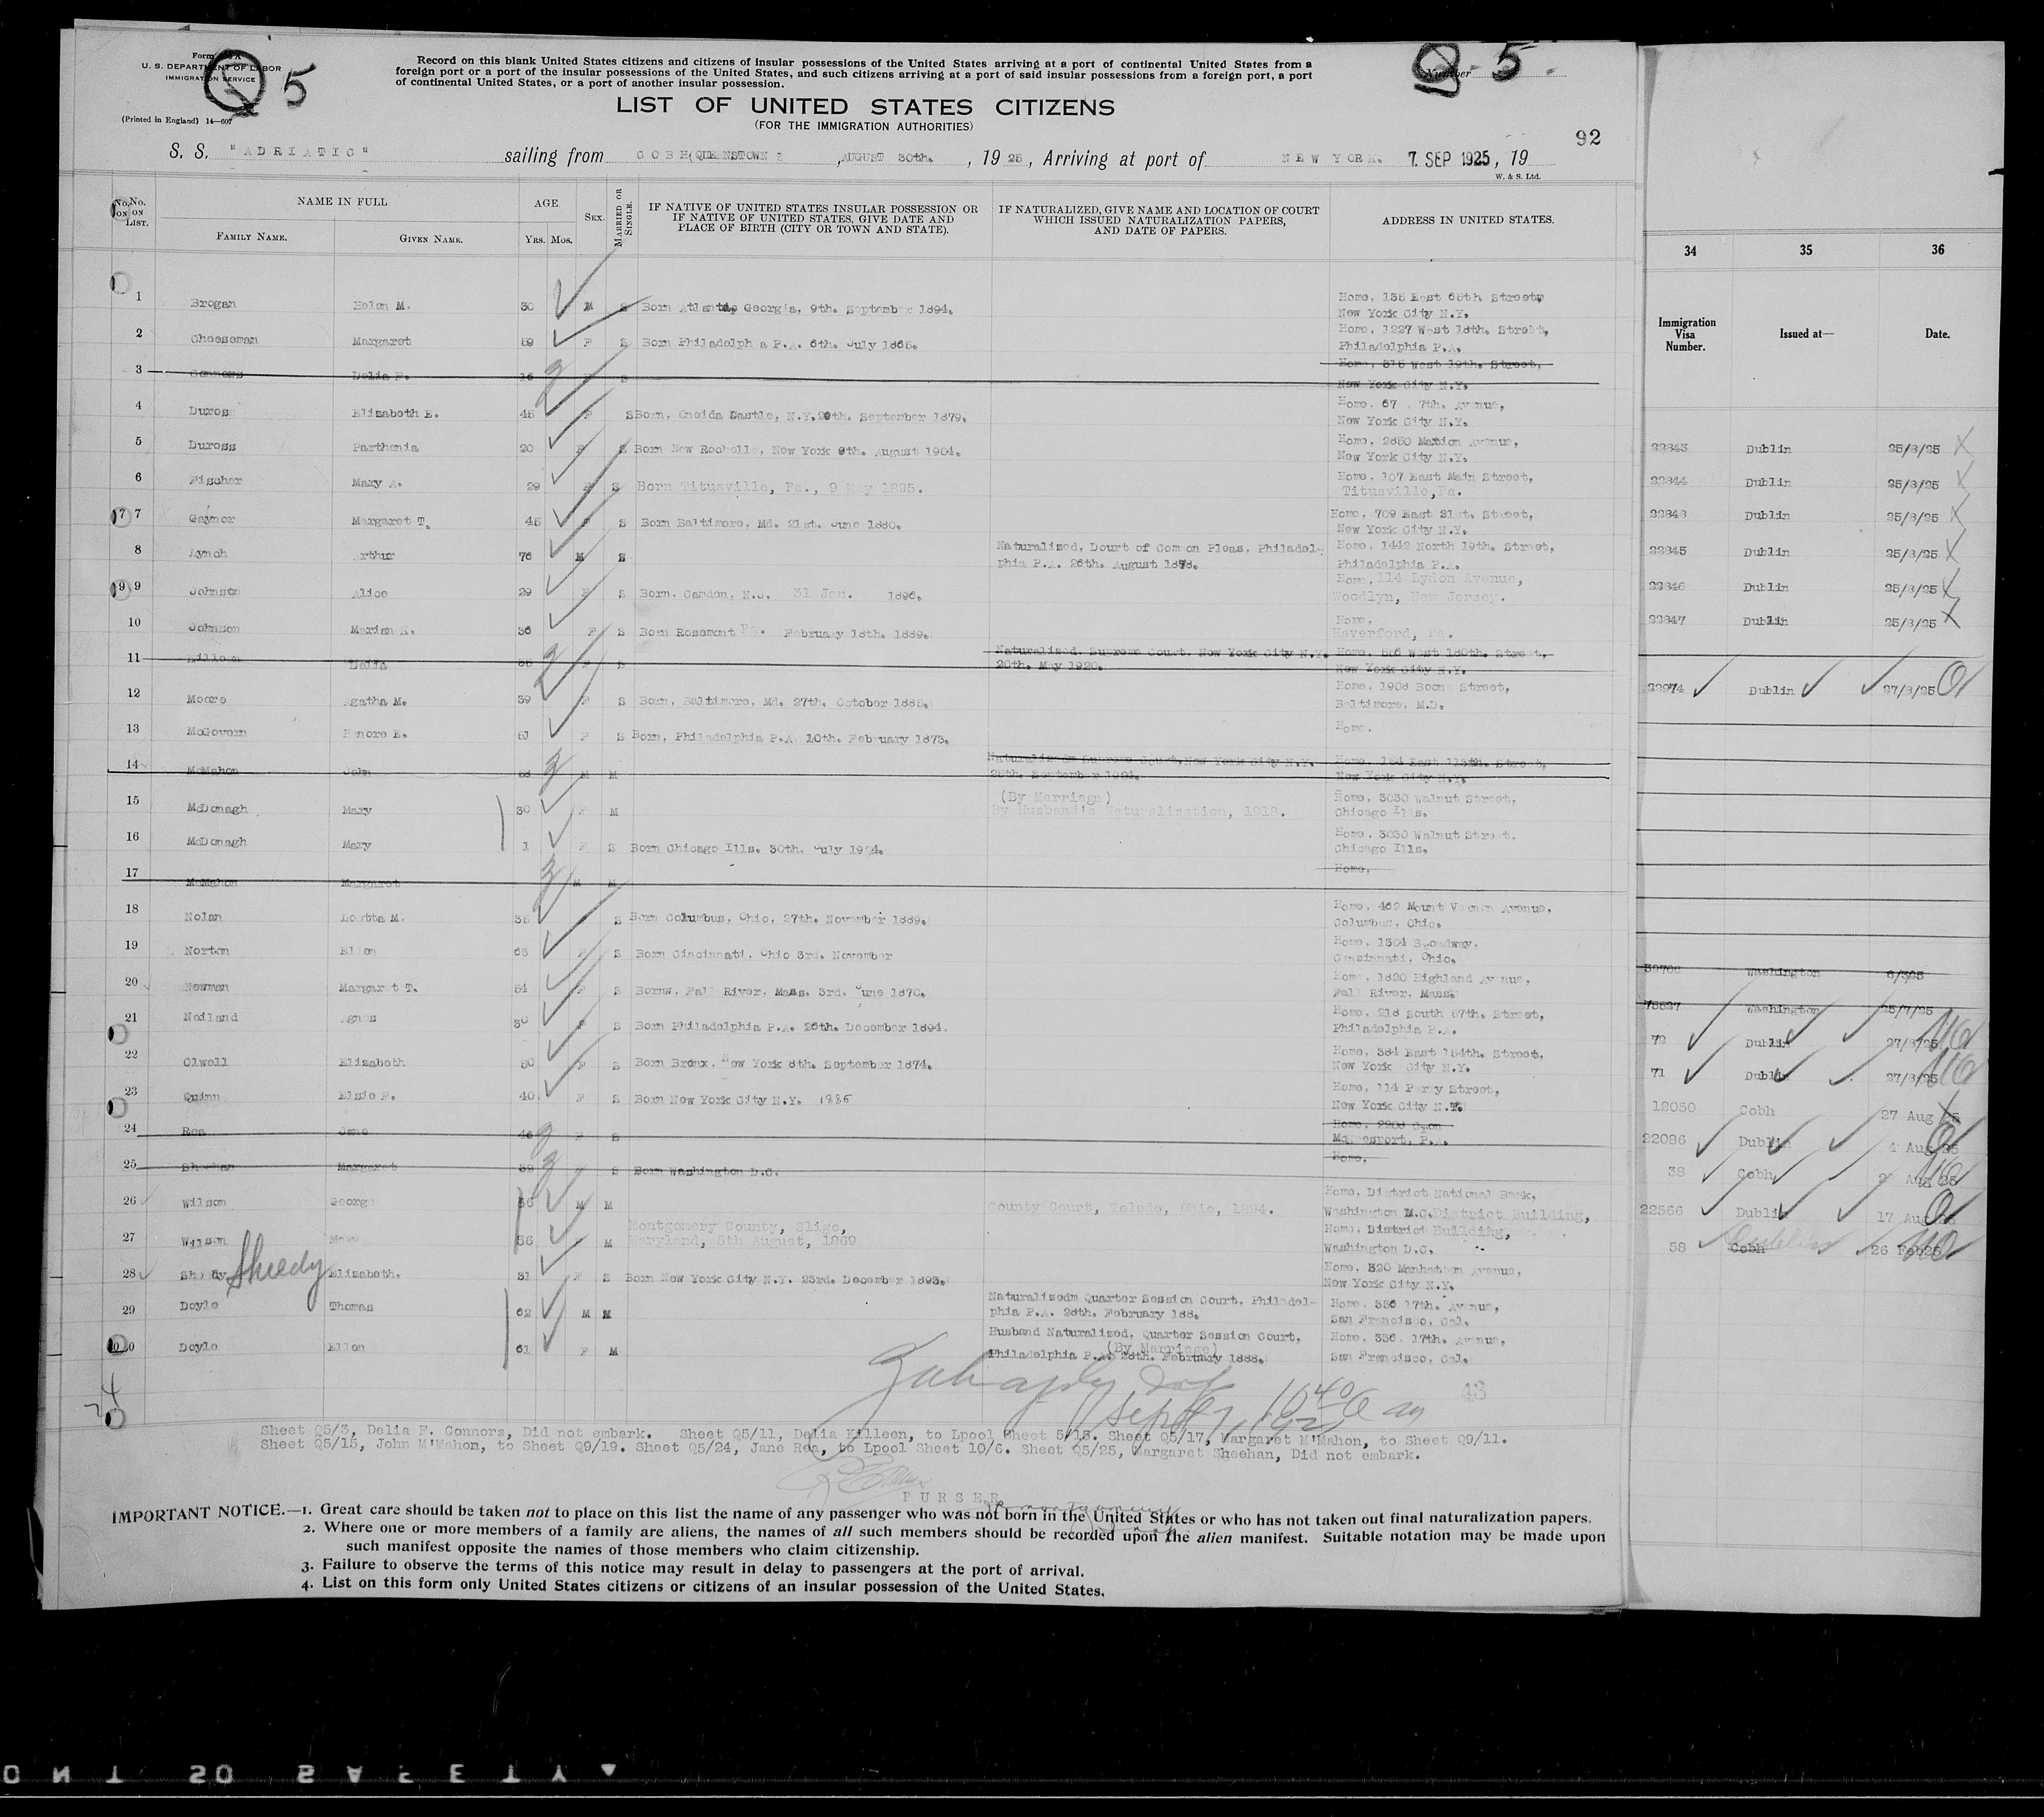 Form
U. S. DEPARTMENT OF LABOR
IMMIGRATION SERVICE
Q 5
(Printed in England) 14—607
Record on this blank United States citizens and citizens of insular possessions of the United States arriving at a port of continental United States from a
foreign port or a port of the insular possessions of the United States, and such citizens arriving at a port of said insular possessions from a foreign port, a port
of continental United States, or a port of another insular possession.
Number Q 5
LIST OF UNITED STATES CITIZENS
(FOR THE IMMIGRATION AUTHORITIES)
92
S. S. "ADRIATIC" sailing from COBH(QUEENSTOWN , AUGUST 30th. , 19 25 , Arriving at port of NEW YORK. 7. SEP 1925 , 19
W. & S. Ltd.
No. ON LIST. NAME IN FULL FAMILY NAME. GIVEN NAME. AGE. YRS. MOS. SEX. MARRIED OR SINGLE. IF NATIVE OF UNITED STATES INSULAR POSSESSION OR IF NATIVE OF UNITED STATES, GIVE DATE AND PLACE OF BIRTH (CITY OR TOWN AND STATE). IF NATURALIZED, GIVE NAME AND LOCATION OF COURT WHICH ISSUED NATURALIZATION PAPERS, AND DATE OF PAPERS. ADDRESS IN UNITED STATES.
1 Brogan Helen M. 30 M S Born Atlanta, Georgia, 9th. September 1894. Home, 135 East 65th Street,
New York City N.Y.
2 Cheeseman Margaret 59 F S Born Philadelph a P.A. 6th. July 1865. Home, 1227 West 18th. Street,
Philadelphia P.A.
3 Connors Delia F. 16 F S Home, 515 West 19th. Street,
New York City N.Y.
4 Duross Elizabeth E. 45 F S Born, Oneida Castle, N.Y. 29th. September 1879. Home. 67 7th. Avenue,
New York City N.Y.
5 Duross Parthenia 20 F S Born New Rochelle, New York 9th. August 1904. Home, 2850 Marion Avenue,
New York City N.Y.
6 Fischer Mary A. 29 F S Born Titusville, Pa., 9 May 1895. Home, 107 East Main Street,
Titusville, Pa.
7 Gaynor Margaret T. 45 F S Born Baltimore, Md. 21st. June 1880. Home, 709 East 21st. Street,
New York City N.Y.
8 Lynch Arthur 76 M S Naturalized, Dourt of Common Pleas, Philadel- Home, 1442 North 19th. Street,
phia P.A. 26th. August 1878. Philadelphia P.A.
9 Johnston Alice 29 F S Born, Camden, N.J. 31 Jan. 1896. Home, 114 Lydon Avenue,
Woodlyn, New Jersey.
10 Johnson Marian K. 36 F S Born Rosemont Pa. February 18th. 1889. Home.
Haverford, Pa.
11 Killeen Delia F S Naturalized, Supreme Court. New York City N.Y. Home, 556 West 180th. Street,
20th. May 1920. New York City N.Y.
12 Moore Agatha M. 39 F S Born, Baltimore, Md. 27th. October 1885. Home, 1908 Boone Street,
Baltimore, M.D.
13 McGovern Honore E. 51 F S Born, Philadelphia P.A. 10th. February 1873. Home.
14 McMahon John 53 M M Supreme Court, New York City N.Y. Home, 154 East 113th. Street,
25th. September 1924. New York City N.Y.
15 McDonagh Mary 30 F M (By Marriage) Home, 3030 Walnut Street,
By Husband's Naturalisation, 1918. Chicago Ills.
16 McDonagh Mary 1 F S Born Chicago Ills. 30th. July 1924. Home, 3030 Walnut Street.
Chicago Ills.
17 McMahon Margaret M M Home,
18 Nolan Loetta M. 35 F S Born Columbus, Ohio, 27th. November 1889. Home, 462 Mount Vernon Avenue,
Columbus, Ohio.
19 Norton Ellen 63 F S Born Cincinnati, Ohio 3rd. November Home, 1304 Broadway.
Cincinnati. Ohio.
20 Newman Margaret T. 54 F S Bornw, Fall River. Mass. 3rd. June 1870. Home, 1820 Highland Avenue,
Fall River, Mass.
21 Neiland Agnes 30 F S Born Philadelphia P.A. 26th. December 1894. Home, 218 South 57th. Street,
Philadelphia P.A.
22 Olwell Elizabeth 50 F S Born Bronx, New York 8th. September 1874. Home, 384 East 154th. Street,
New York City N.Y.
23 Quinn Elsie F. 40 F S Born New York City N.Y. 1885 Home, 114 Perry Street,
New York City N.Y.
24 Rea Jane 46 F S Home, 2208
McKeesport, P.A.
25 Sheehan Margaret 39 F S Born Washington D.C. Home,
26 Wilson George 56 M M County Court, Toledo, Ohio, 1894. Home, District National Bank,
Washington D.C. District Building,
27 Wilson Mary 56 F M Montgomery County, Sligo, Home, District Building,
Maryland, 5th August, 1869 Washington D.C.
28 Sheedy Elizabeth. 31 F S Born New York City N.Y. 23rd. December 1893. Home. 520 Manhattan Avenue,
New York City N.Y.
29 Doyle Thomas 62 M M Naturalizedm Quarter Session Court, Philadel- Home, 336 17th. Avenue,
phia P.A. 28th. February 188. San Francisco, Cal.
30 Doyle Ellen 61 F M Husband Naturalized, Quarter Session Court, Home, 336. 17th. Avenue,
(By Marriage)
Philadelphia P.A. 28th. February 1888. San Francisco, Cal.
43
Sheet Q5/3, Delia F. Connors, Did not embark. Sheet Q5/11, Delia Killeen, to Lpool Sheet 5/15. Sheet Q5/17, Margaret M'Mahon, to Sheet Q9/11.
Sheet Q5/15, John M'Mahon, to Sheet Q9/19. Sheet Q5/24, Jane Rea, to Lpool Sheet 10/6. Sheet Q5/25, Margaret Sheehan, Did not embark.
PURSER
IMPORTANT NOTICE.—1. Great care should be taken not to place on this list the name of any passenger who was not born in the United States or who has not taken out final naturalization papers.
2. Where one or more members of a family are aliens, the names of all such members should be recorded upon the alien manifest. Suitable notation may be made upon
such manifest opposite the names of those members who claim citizenship.
3. Failure to observe the terms of this notice may result in delay to passengers at the port of arrival.
4. List on this form only United States citizens or citizens of an insular possession of the United States.
34 35 36
Immigration Visa Number. Issued at— Date.
22843 Dublin 25/8/25
22844 Dublin 25/8/25
22848 Dublin 25/8/25
22845 Dublin 25/8/25
22846 Dublin 25/8/25
22847 Dublin 25/8/25
22974 Dublin 27/8/25
Washington
Washington 25/7/25
72 Dublin 27/8/25
71 Dublin 27/8/25
12050 Cobh 27 Aug 25
22086 Dublin 4 Aug 25
38 Cobh Aug 25
22566 Dublin 17 Aug 25
58 Cobh Dublin 26 Feb 25
SAFETY